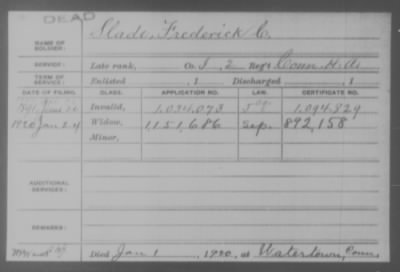 DEAD
NAME OF SOLDIER: Slade, Frederick C.
SERVICE: Late rank, Co. I, 2 Reg't Conn. H. A.
TERM OF SERVICE: Enlisted , 1 Discharged , 1
DATE OF FILING. CLASS. APPLICATION NO. LAW. CERTIFICATE NO.
1891 Invalid, 1,034,073 1,094,829
1920 Jan 24 Widow, 1,151,686 Sep. 892,158
Minor,
ADDITIONAL SERVICES:
REMARKS:
Died Jan 1, 1920, at Watertown, Conn